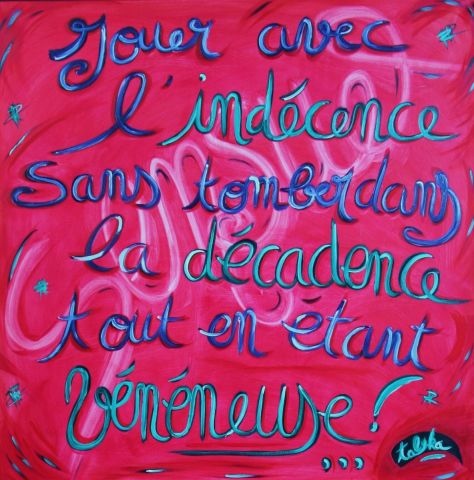 Jouer avec
l'indécence
sans tomber dans
la décadence
tout en étant
vénéneuse !
...